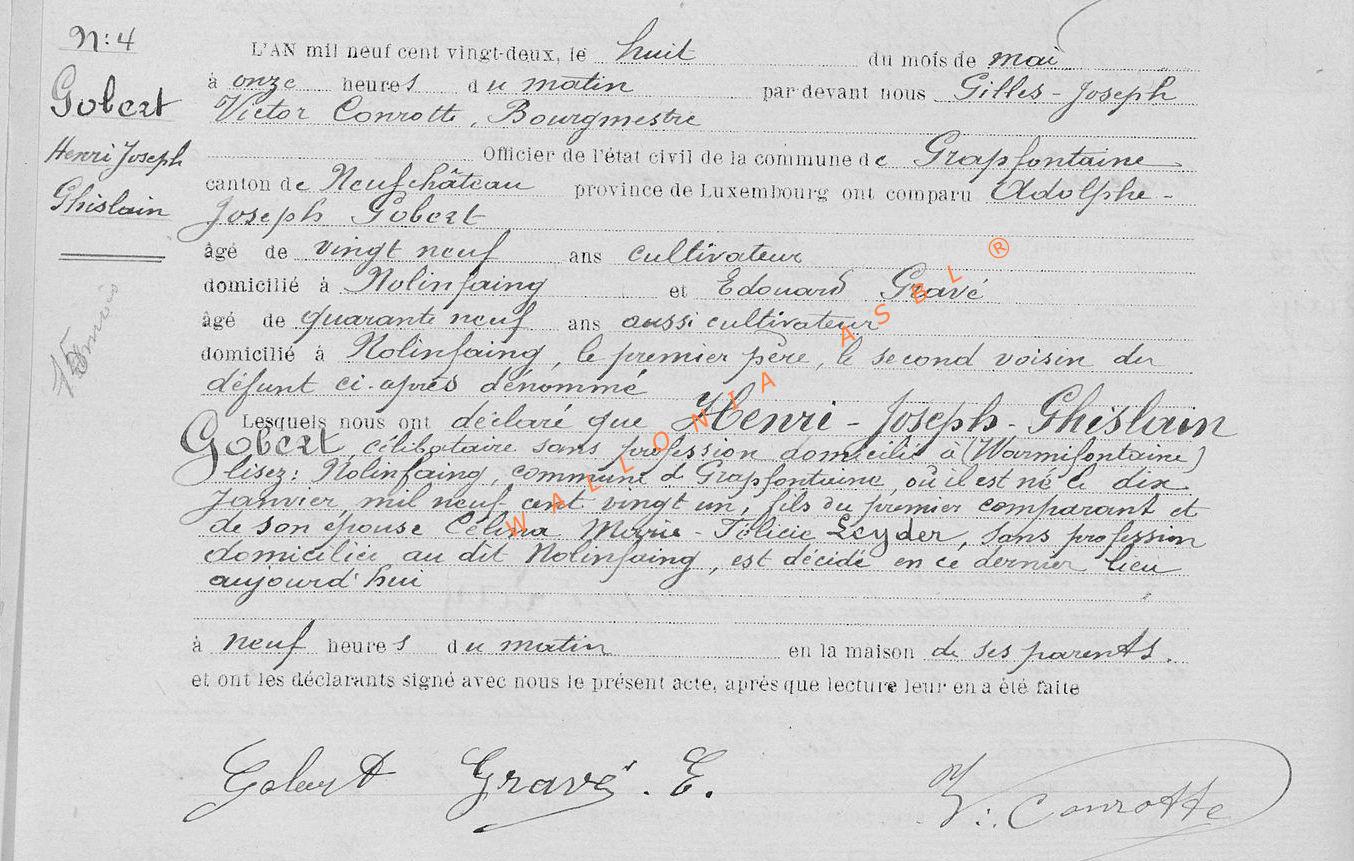 N: 4
Gobert
Henri Joseph
Ghislain
L'AN mil neuf cent vingt-deux, le huit du mois de mai
à onze heures du matin par devant nous Gilles-Joseph
Victor Conrotte, Bourgmestre
Officier de l'état civil de la commune de Grapfontaine
canton de Neufchâteau province de Luxembourg ont comparu Adolphe-
Joseph Gobert
âgé de vingt neuf ans cultivateur
domicilié à Nolinfaing et Edouard Gravé
âgé de quarante neuf ans aussi cultivateur
domicilié à Nolinfaing, le premier père, le second voisin du
défunt ci-après dénommé
Lesquels nous ont déclaré que Henri-Joseph-Ghislain
Gobert, célibataire sans profession domicilié à (Warmifontaine)
lisez: Nolinfaing, commune d Grapfontaine, où il est né le dix
Janvier, mil neuf cent vingt un, fils du premier comparant et
de son épouse Célina Marie-Félicie Leyder, sans profession
domiciliée au dit Nolinfaing, est décédé en ce dernier lieu
aujourd'hui
à neuf heures du matin en la maison de ses parents.
et ont les déclarants signé avec nous le présent acte, après que lecture leur en a été faite
Gobert A
Gravé. E.
V: Conrotte
WALLONIA ASBL ®